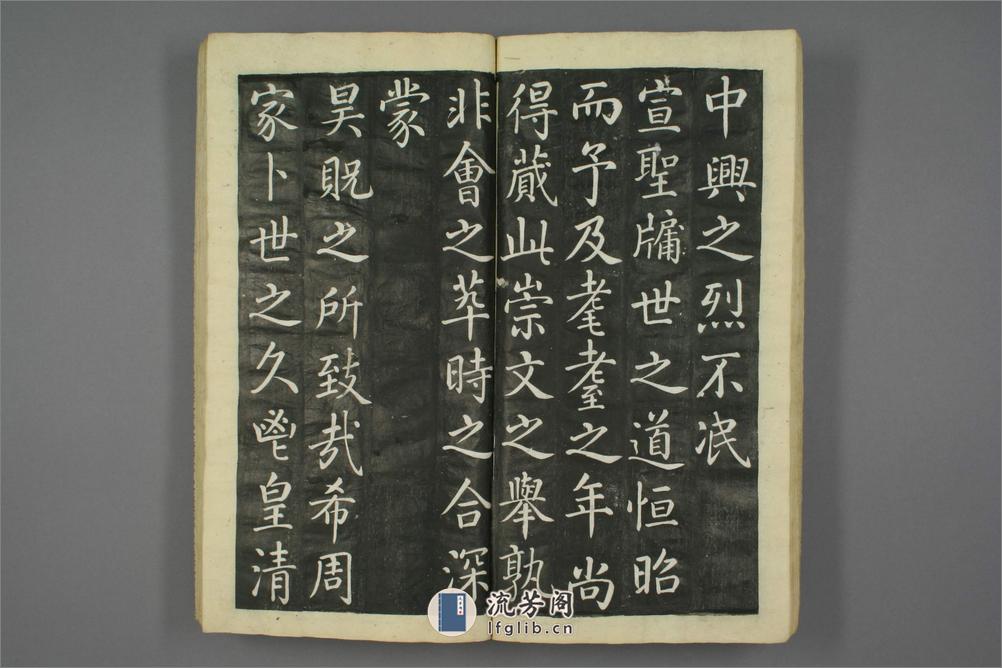 中興之烈不泯
宣聖牖世之道恒昭
而予及耄耋之年尚
得蕆此崇文之舉孰
非會之萃時之合深
蒙
昊貺之所致哉希周
家卜世之久鬯皇清
流芳阁
lfglib.cn